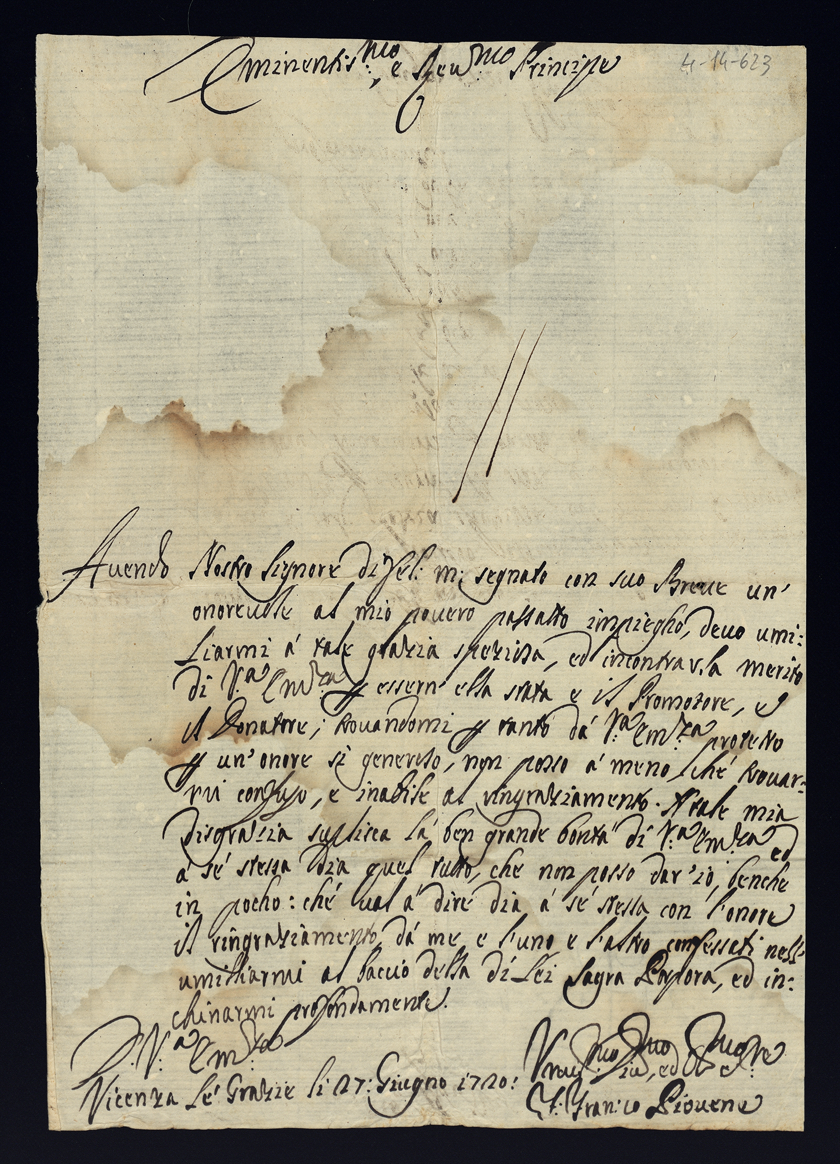 Eminentis.mo, e Reu.mo Principe
4-14-623
Auendo Nostro Signore di fel: m: segnato con suo Breue un'
onoreuole al mio pouero passatto impiegho, deuo umi:
liarmi á tale grazia speziosa, ed incontrar la merito
di V.a Em.za essern' ella stata e il Promotore, e
il Donatore; trouandomi tanto dá V.a Em.za protetto
un' onore sì generoso, non posso á meno, ché trouar:
mi confuso, e inabile al ringraziamento. A tale mia
disgrazia suplisca lá ben grande bontá di V.a Em.za ed
a sé stessa dia quel tutto, che non posso dar' io, benche
in pocho: ché ual á dire dia á sé stessa con l'onore
il ringraziamento, dá me, e l'uno e l'altro confessati nell'
umilliarmi al baccio della di Lei Sagra Porpora, ed in:
chinarmi profondamente.
D. V.a Em.za
Vicenza Lé Grazie li 27: Giugno 1720:
Vmil.mo Diu.mo, ed Ob.
F. Franc.o Piouene